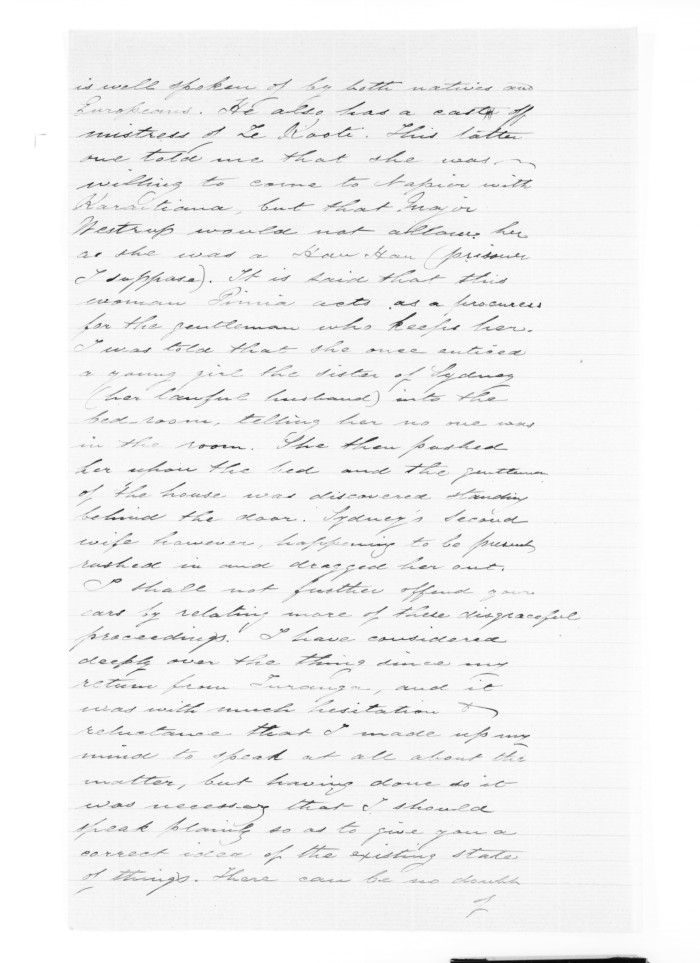 is well spoken of by both natives and
Europeans. He also has a cast off
mistress of Te Kooti. This latter
one told me that she was
willing to come to Napier with
Karaitiana, but that Major
Westrup would not allow her
as she was a Hau Hau (prisoner
I suppose). It is said that this
woman Pimia acts as a procuress
for the gentleman who keeps her.
I was told that she once enticed
a young girl the sister of Sydney
(her lawful husband) into the
bed-room, telling her no one was
in the room. She then pushed
her upon the bed and the gentleman
of the house was discovered standing
behind the door. Sydney's second
wife however, happening to be present,
rushed in and dragged her out.
I shall not further offend your
ears by relating more of these disgraceful
proceedings. I have considered
deeply over the thing since my
return from Turanga, and it
was with much hesitation &
reluctance that I made up my
mind to speak at all about the
matter, but having done so it
was necessary that I should
speak plainly so as to give you a
correct idea of the existing state
of things. There can be no doubt
of